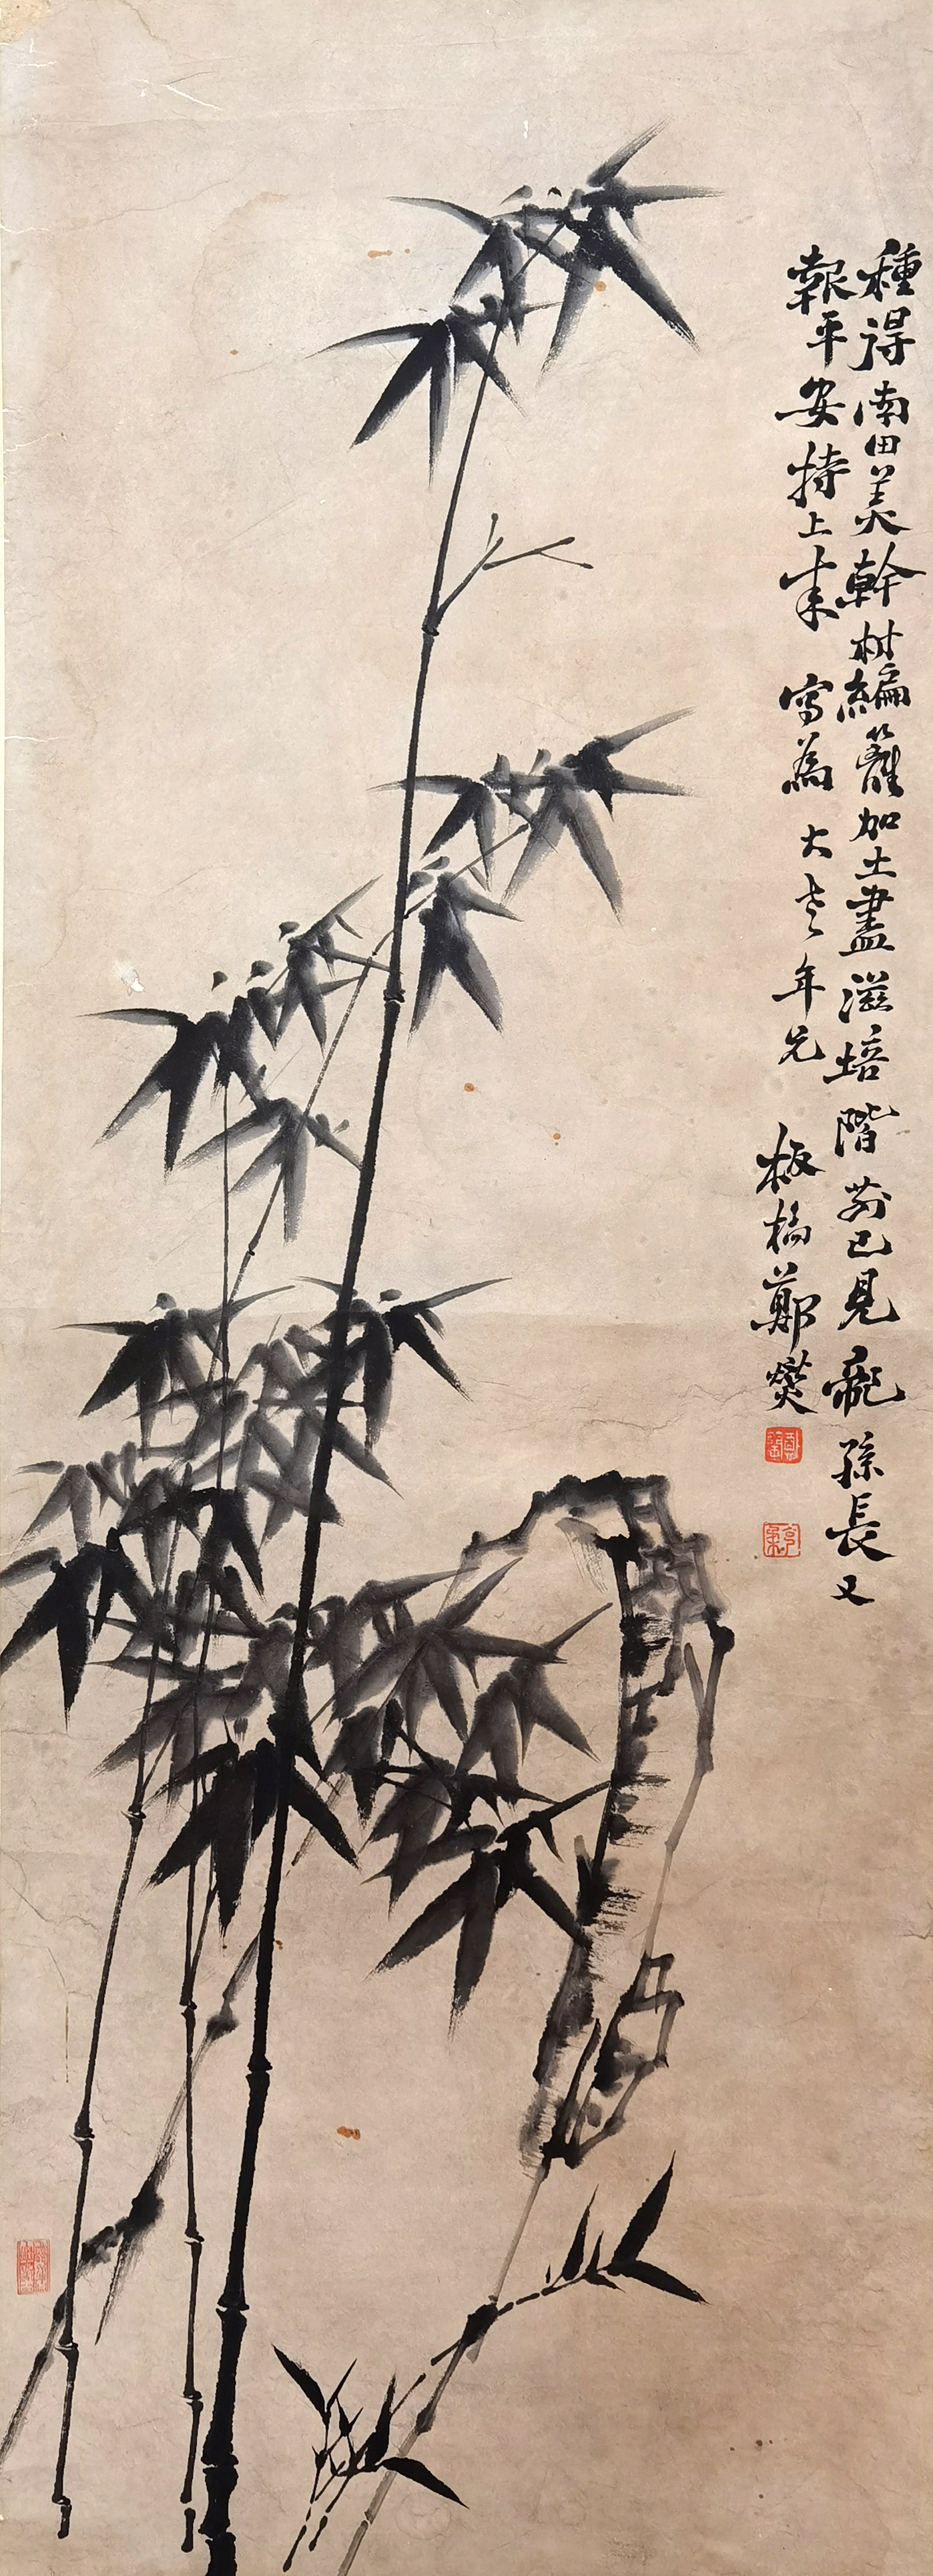 種得南田美幹材編籬加土盡滋培階前已見龍孫長又
報平安特上來 寫為 大老年兄
板橋鄭燮